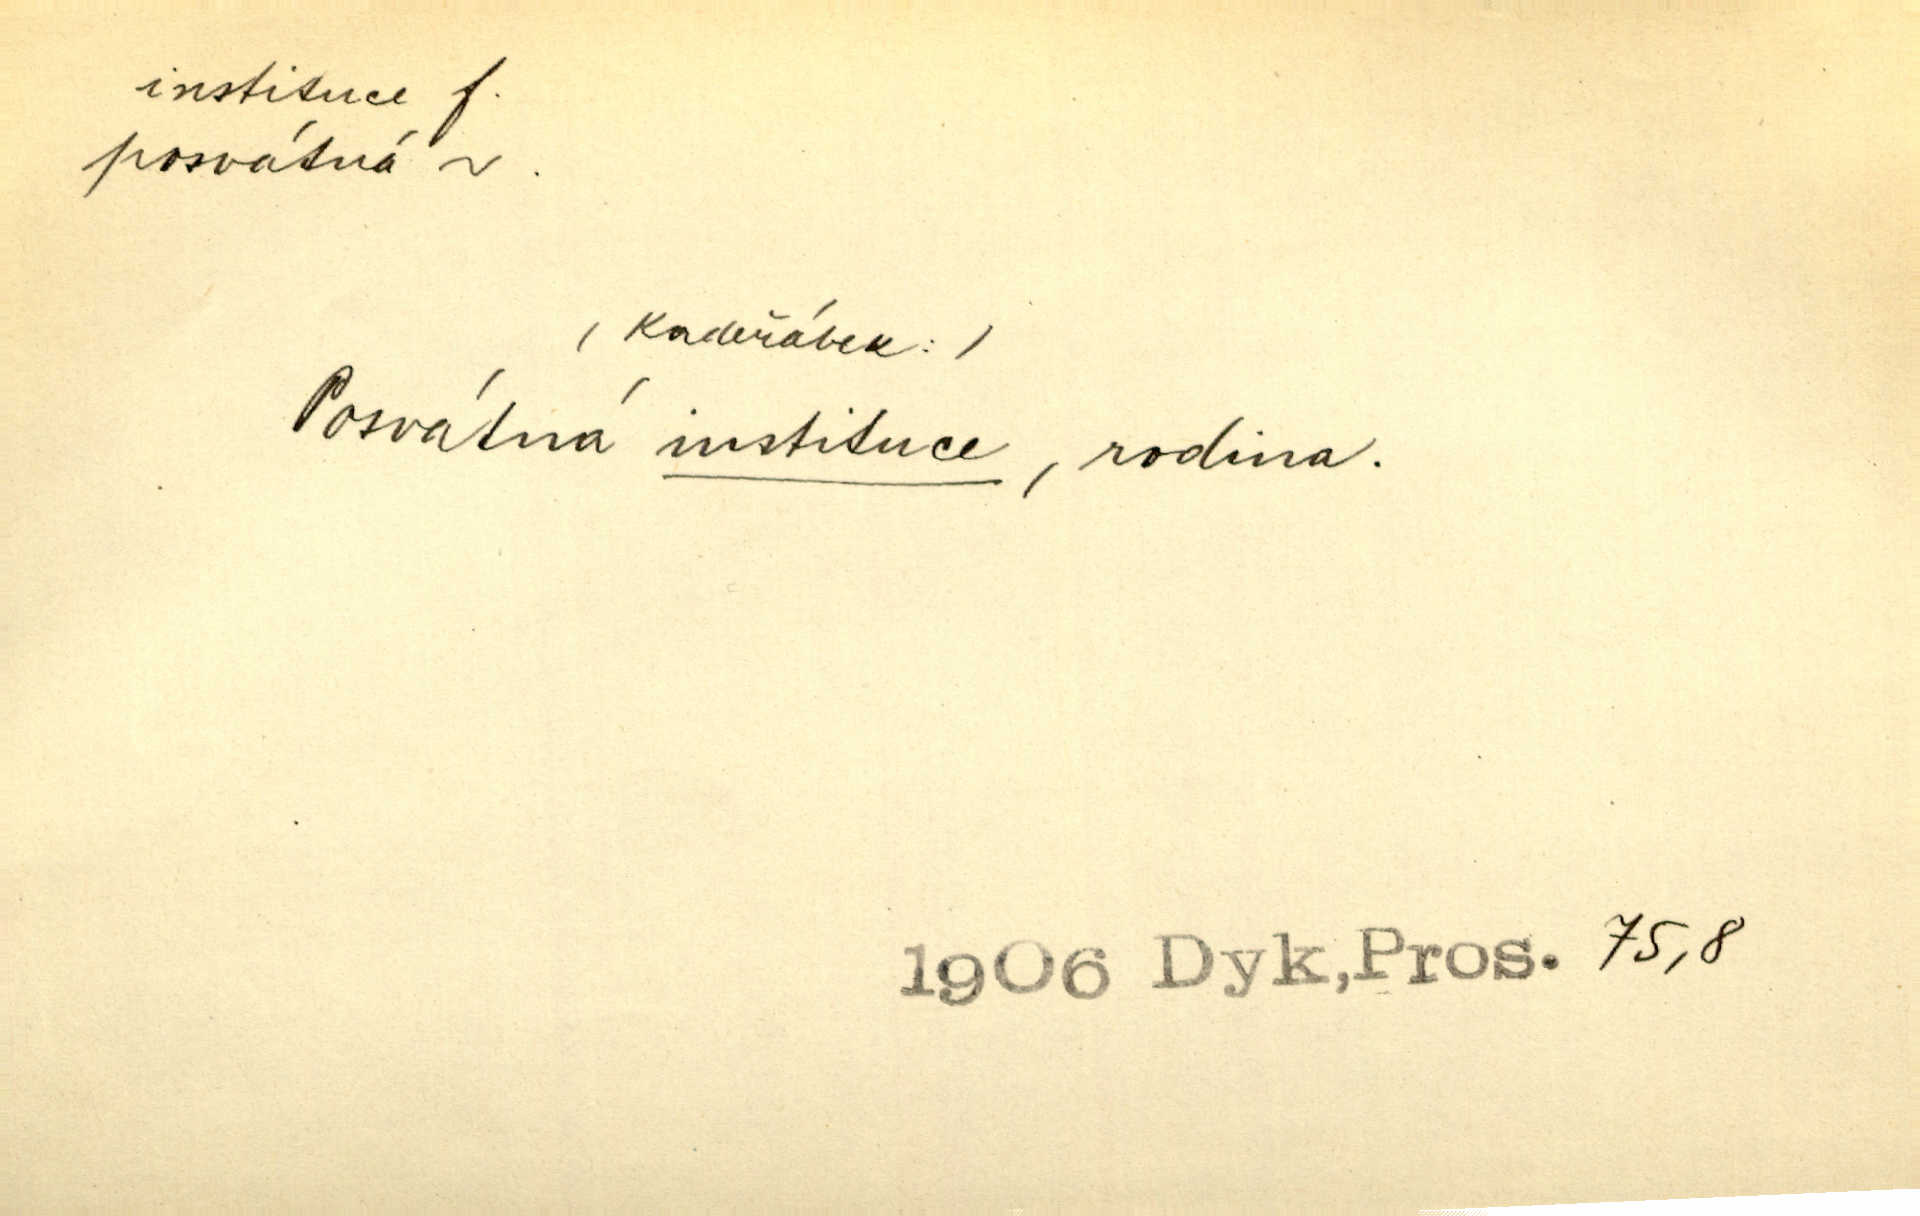 instituce f.
posvátná ~.
( Kadeřábek: )
Posvátná instituce, rodina.
1906 Dyk,Pros. 75,8